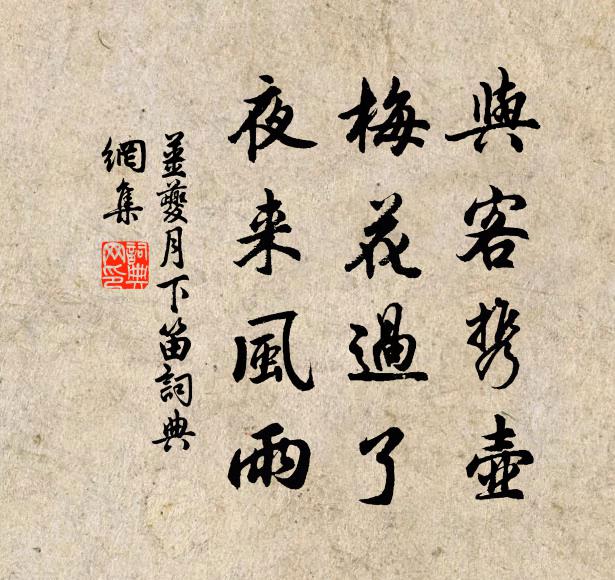 與客携壺
梅花過了
夜来風雨
姜夔月下笛詞典
網集
詞典
网印